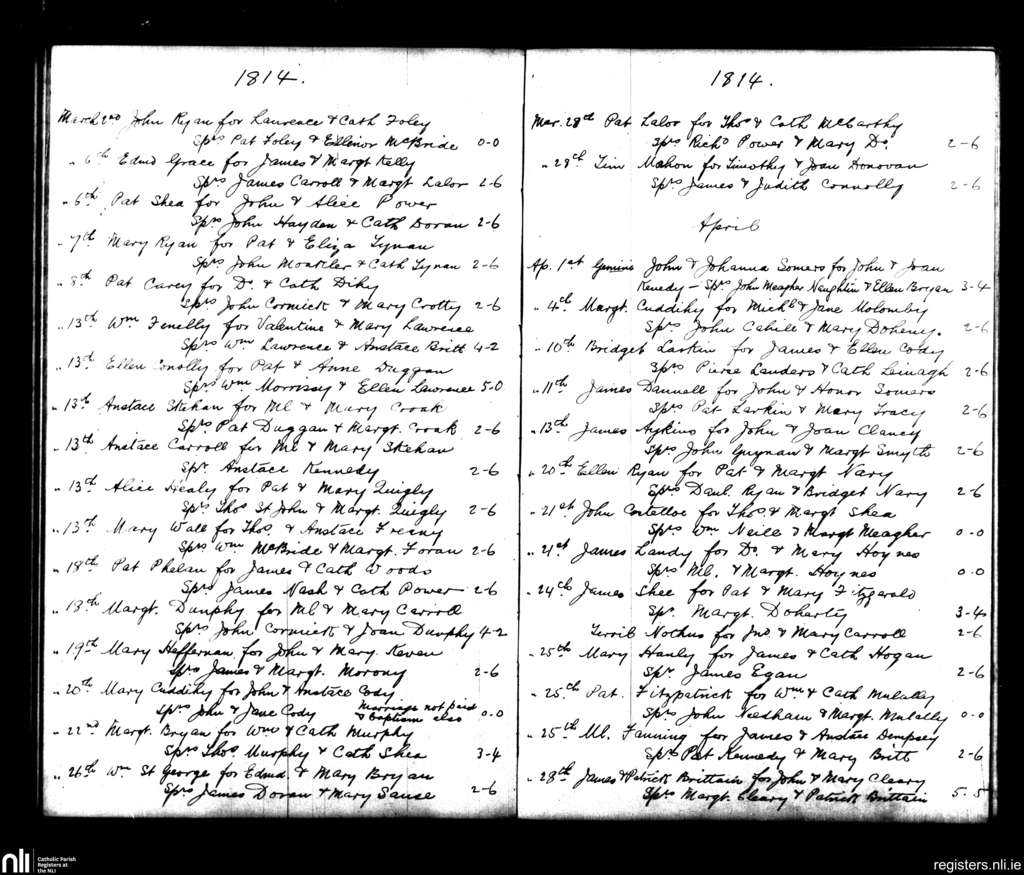 1814.
March 2nd John Ryan for Laurence & Cath Foley
Sprs Pat Foley & Ellinor McBride 0-0
" 6th Edmd Grace for James & Margt Kelly
Sprs James Carroll & Margt Lalor 2-6
" 6th Pat Shea for John & Alice Power
Sprs John Hayden & Cath Doran 2-6
" 7th Mary Ryan for Pat & Eliza Tynan
Sprs John & Cath Tynan 2-6
" 8th Pat Carey for Do. & Cath Dihy
Sprs John Cormick & Mary Crotty 2-6
" 13th Wm Fenelly for Valentine & Mary Lawrence
Sprs Wm Lawrence & Anstace Britt 4-2
" 13th Ellen Conolly for Pat & Anne Duggan
Sprs Wm Morrissy & Ellen Lawrence 5-0
" 13th Anstace Skehan for Ml & Mary Croak
Sprs Pat Duggan & Margt. Croak 2-6
" 13th Anstace Carroll for Ml & Mary Skehan
Spr. Anstace Kennedy 2-6
" 13th Alice Healy for Pat & Mary Quigly
Sprs Thos St John & Margt. Quigly 2-6
" 13th Mary Wall for Thos. & Anstace Freny
Sprs Wm McBride & Margt. Foran 2-6
" 18th Pat Phelan for James & Cath Woods
Sprs James Nash & Cath Power 2-6
" 18th Margt. Dunphy for Ml & Mary Carroll
Sprs John Cormick & Joan Dunphy 4-2
" 19th Mary Heffernan for John & Mary Keven
Sprs James & Margt. Morony 2-6
" 20th Mary Cuddihy for John & Anstace Cody
Sprs John & Jane Cody Marriage not paid & baptism also 0-0
" 22nd Margt. Bryan for Wm & Cath Murphy
Sprs Thos Murphy & Cath Shea 3-4
" 26th Wm St George for Edmd. & Mary Bryan
Sprs James Doran & Mary Sause 2-6
1814.
Mar. 28th Pat Lalor for Thos & Cath McCarthy
Sprs Richd Power & Mary Do. 2-6
" 28th Tim Mahon for Timothy & Joan Donovan
Sprs James & Judith Connolly 2-6
April
Ap. 1st Gemini John & Johanna Somers for John & Joan
Kenedy – Sprs John Meagher Naughtin & Ellen Bryan 3-4
" 4th Margt. Cuddihy for Michl & Jane Molomby
Sprs John Cahill & Mary Doheny. 2-6
" 10th Bridget Larkin for James & Ellen Cody
Sprs Pierce Landers & Cath Leinagh 2-6
" 11th James Dannell for John & Honor Somers
Sprs Pat Larkin & Mary Tracy 2-6
" 13th James Aykins for John & Joan Clancy
Sprs John Guynan & Margt Smyth 2-6
" 20th Ellen Ryan for Pat & Margt Nary
Sprs Danl. Ryan & Bridget Nary 2-6
" 21st John Costelloe for Thos. & Margt Shea
Sprs Wm Neile & Margt Meagher 0-0
" 21st James Landy for Do. & Mary Hoynes
Sprs Ml. & Margt. Hoynes 0-0
" 24th James Shee for Pat & Mary Fitzgerald
Spr. Margt. Doherty 3-4
Terrib Nothus for Jno & Mary Carroll 2-6
" 25th Mary Hanly for James & Cath Hogan
Spr. James Egan 2-6
" 25th Pat. Fitzpatrick for Wm & Cath Mulally
Sprs John Needham & Margt. Mulally 0-0
" 25th Ml. Fanning for James & Anstace Dempsey
Sprs Pat Kennedy & Mary Britt 2-6
" 28th James & Patrick Brittain for John & Mary Cleary
Sprs Margt. Cleary & Patrick Brittain 5-5
nli
Catholic Parish
Registers at
the NLI
registers.nli.ie